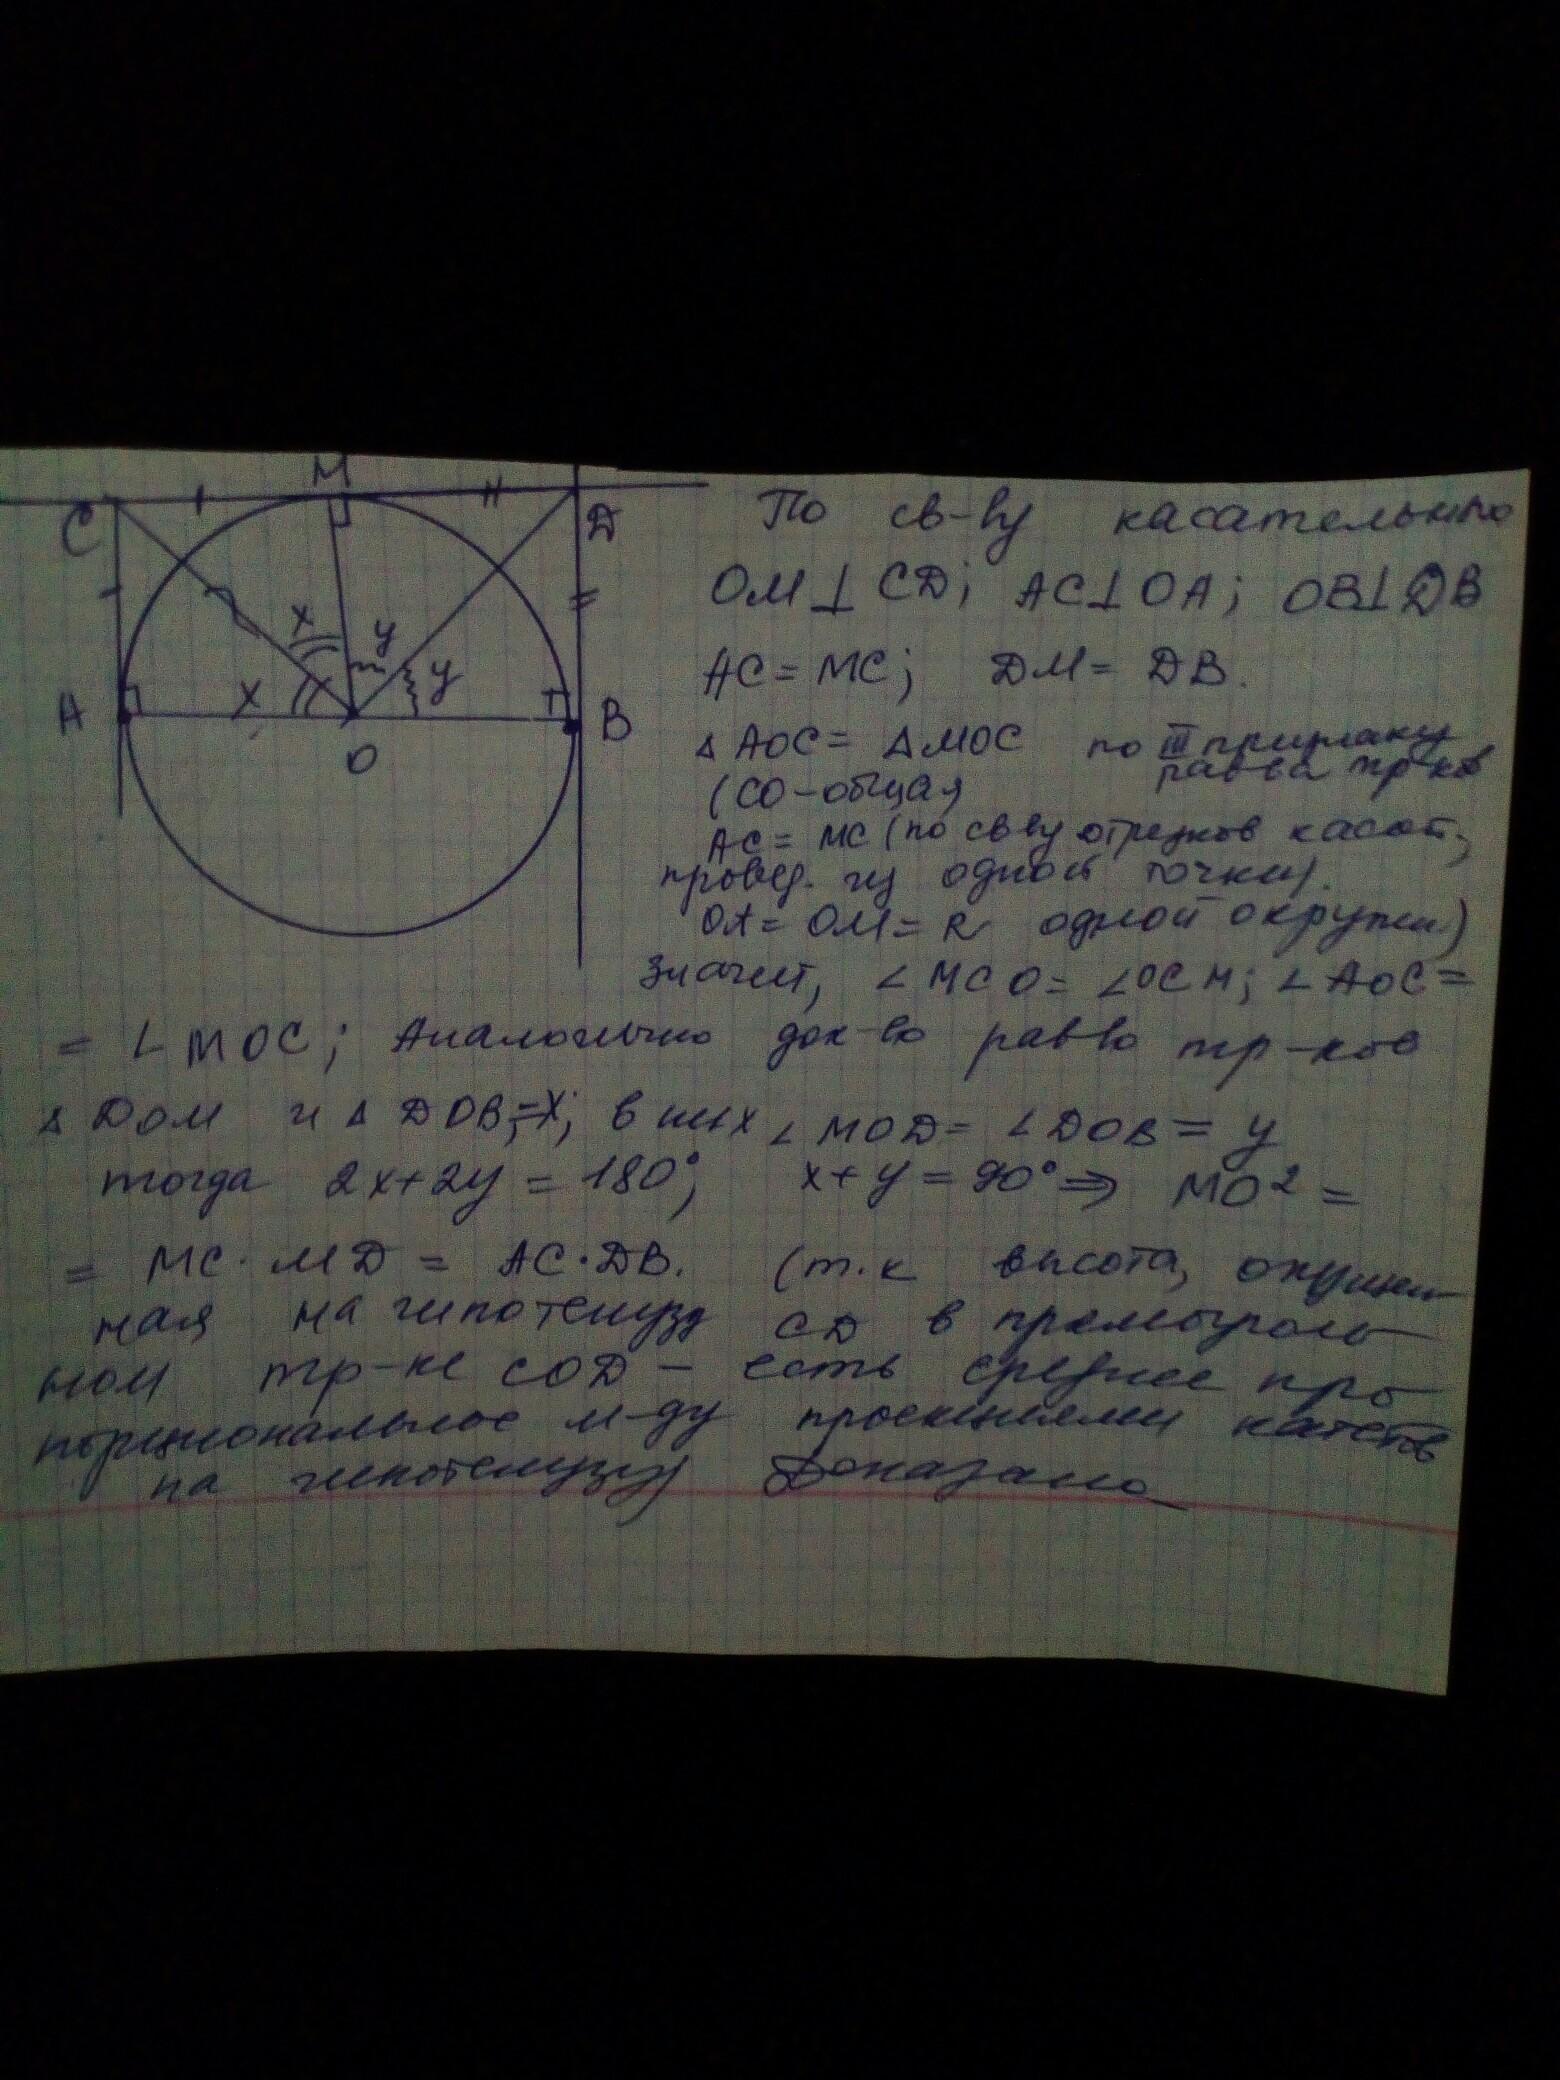 M
C
D
x
y
y
x
A
B
O
По св-ву касательно
OM ⊥ CD; AC ⊥ OA; OB ⊥ DB
AC = MC; DM = DB.
△ AOC = △ MOC по III признаку
рав-ва тр-ков
(CO - общая
AC = MC (по св-ву отрезков касат.,
провед. из одной точки).
OA = OM = R одной окружн.)
значит, ∠ MCO = ∠ OCM; ∠ AOC =
= ∠ MOC; Аналогично док-во рав-во тр-ков
△ DOM и △ DOB, = x; в них ∠ MOD = ∠ DOB = y
тогда 2x + 2y = 180°; x + y = 90° ⇒ MO² =
= MC · MD = AC · DB. (т.к высота, опущен-
ная на гипотенузу CD в прямоуголь-
ном тр-ке COD - есть среднее про-
порциональное м-ду проекциями катетов
на гипотенузу) Доказано